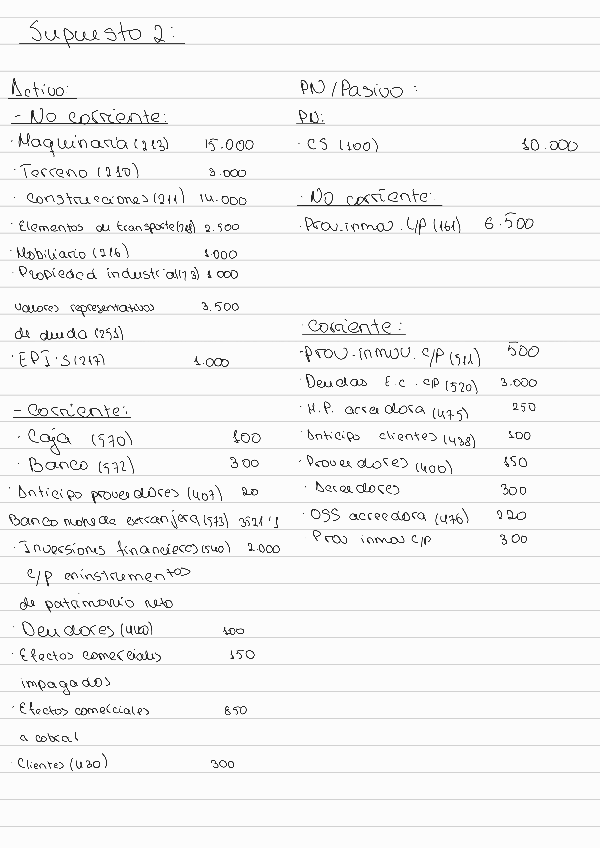 Supuesto 2:
Activo:
- No corriente:
· Maquinaria (213) 15.000
· Terreno (210) 3.000
· Construcciones (211) 14.000
· Elementos de transporte (218) 2.500
· Mobiliario (216) 1.000
· Propiedad industrial 1.000
valores representativos 3.500
de deuda (251)
· EPI'S (217) 1.000
- Corriente:
· Caja (570) 100
· Banco (572) 300
· Anticipo proveedores (407) 20
Banco moneda extranjera (573) 3521'1
· Inversiones financieras (540) 2.000
c/p en instrumentos
de patrimonio neto
· Deudores (440) 100
· Efectos comerciales 150
impagados
· Efectos comerciales 650
a cobrar
· Clientes (430) 300
PN / Pasivo :
PN:
· CS (100) 10.000
· No corriente:
· Prov. inmov. L/P (161) 6.500
· Corriente:
· Prov. inmov. C/P (511) 500
· Deudas E.C. C/P (520) 3.000
· H.P. acreedora (475) 250
· Anticipo clientes (438) 100
· Proveedores (400) 150
· Acreedores 300
· OSS acreedora (476) 220
Prov inmov C/P 300